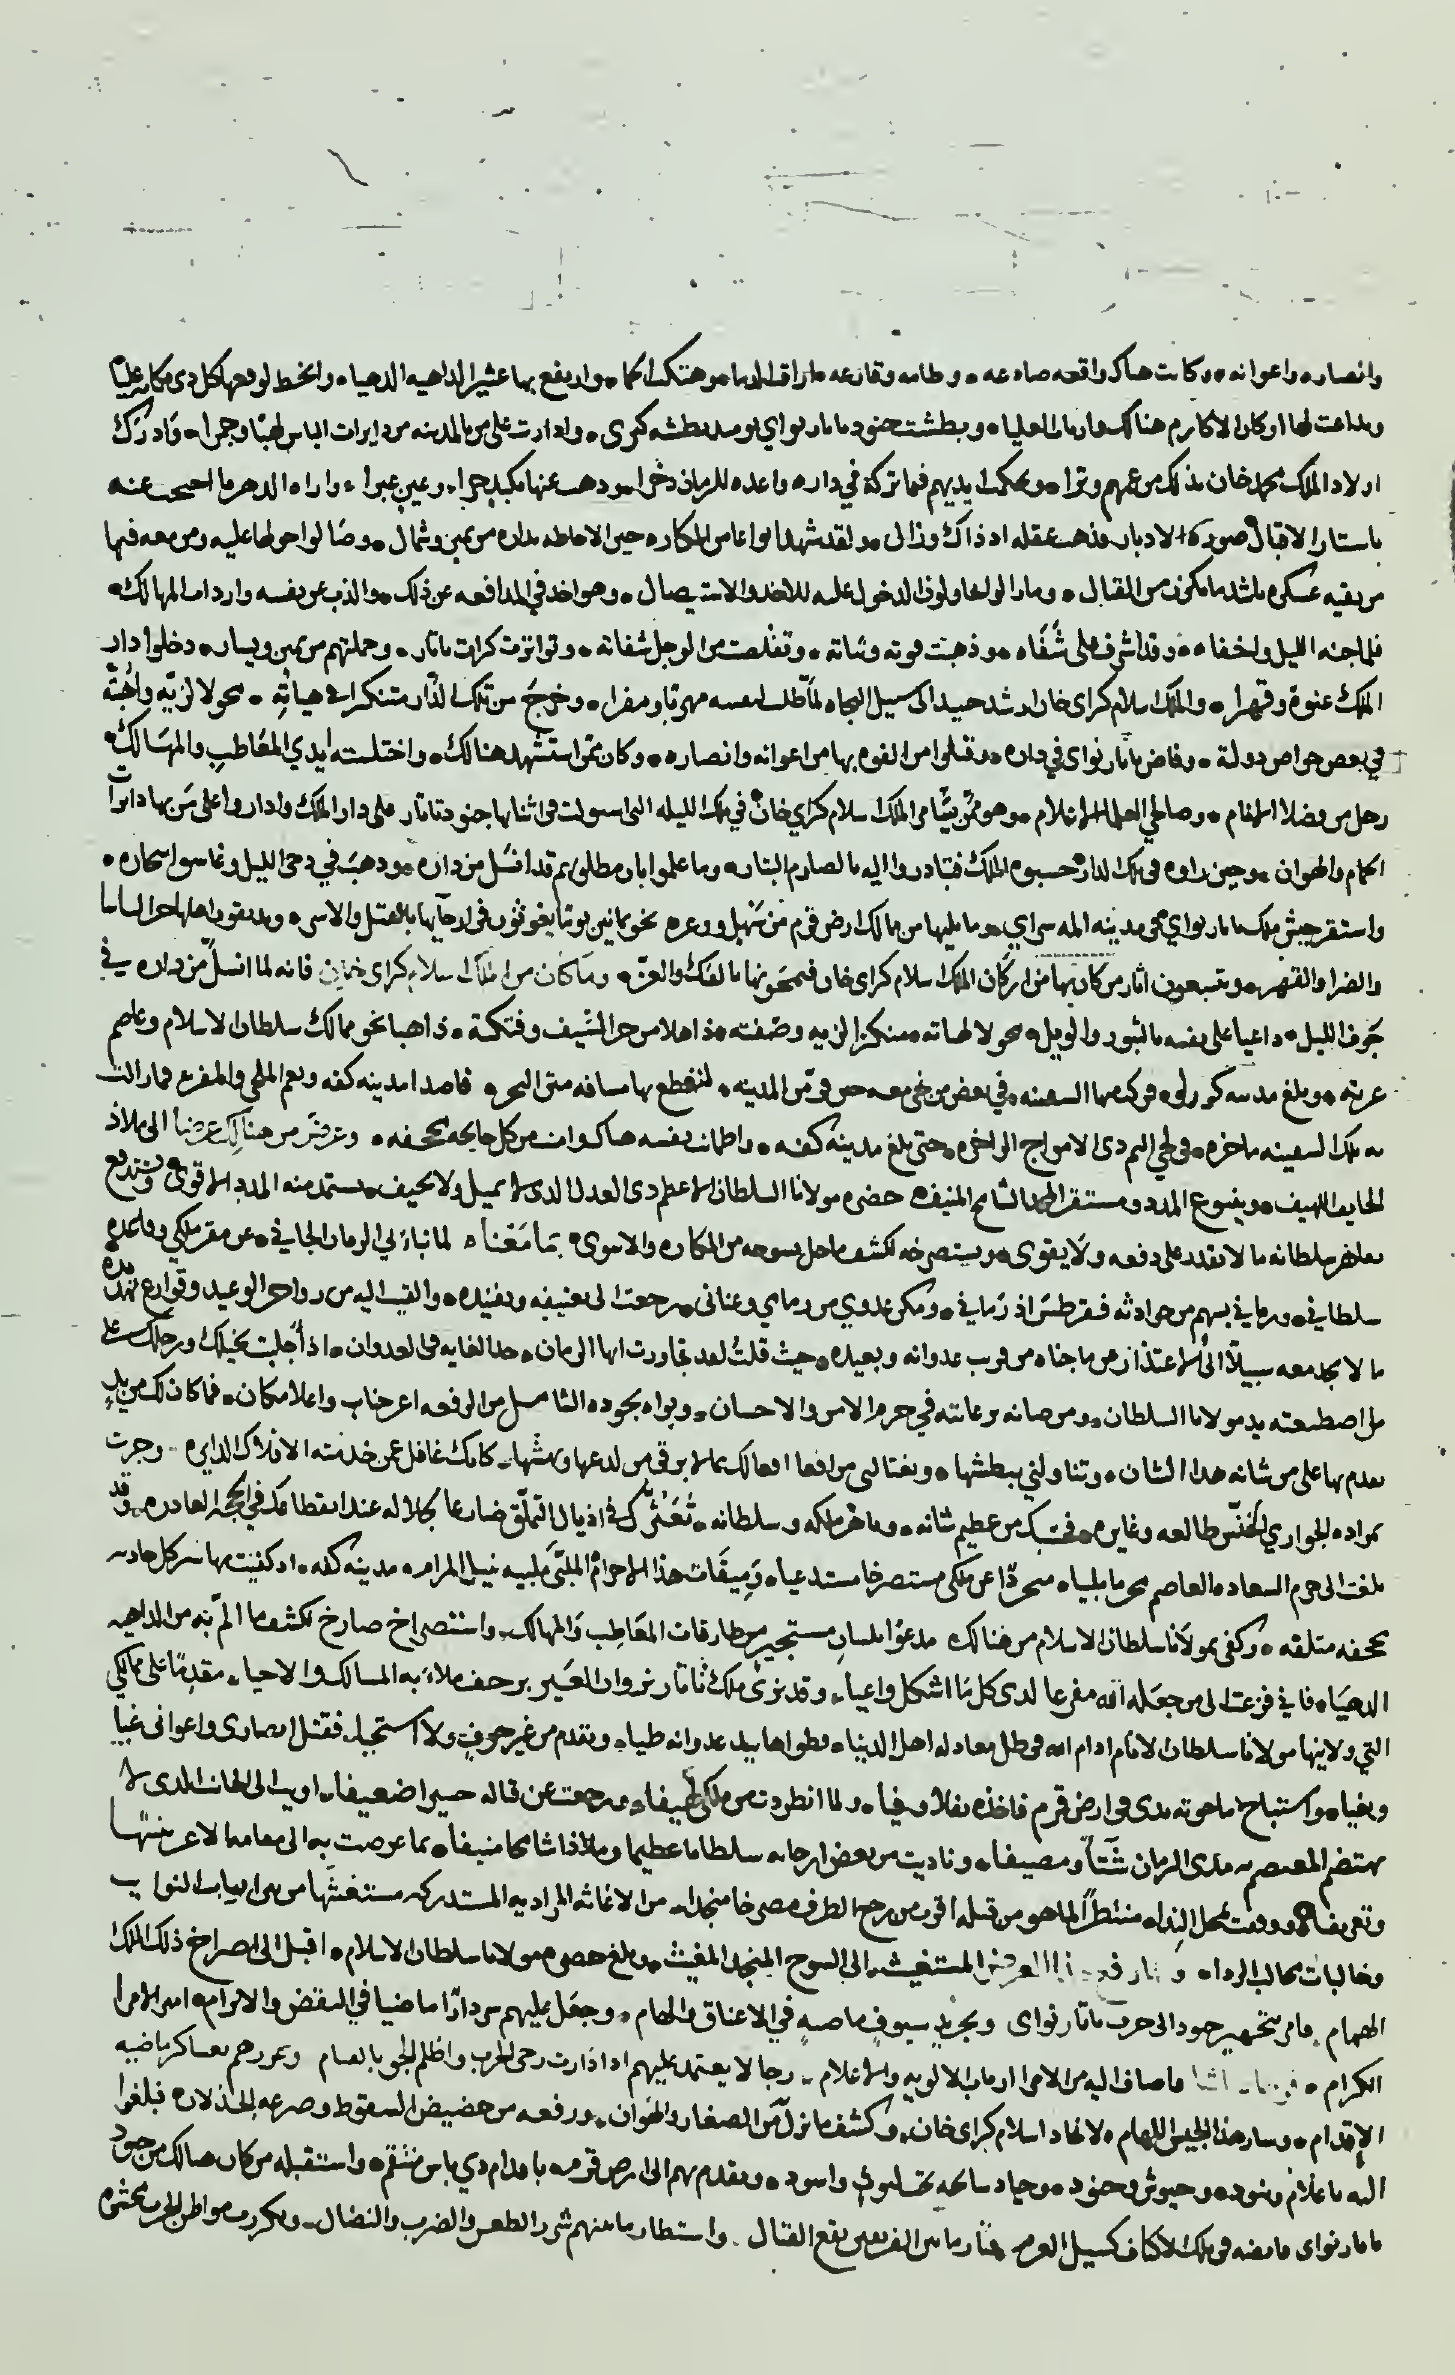 وانصاره واعوانه وكانت هناك واقعه صادعه وطامه وقارعه اراقت الدما وهتكت الحما وارتفع بها عثير الداهيه الدهيا وانحط لوقعها كل ذى مكانه عليا
وتداعت لها اركان الاكارم هنالك وارباب العليا وبطشت جنود تاتار نواى يومىد بطشه كبرى وادارت على من بالمدينه من دايرات الباس لهبا وجمرا وادرك
اولاد الملك محمد خان بذلك من عمهم وترا وتحكمت ايديهم فيما تركه في داره واعده للزمان ذخرا وذهب عنها بكبد حرا وعين عبرا واراه الدهر ما احتجب عنه
باستار الاقبال صورة الادبار فذهب عقله اذ ذاك وزال ولقد شهد انواعا من المكاره حين الاحاطه بداره من يمين وشمال وصالوا حولها عليه ومن معه فيها
من بقيه عسكره باشد ما يكون من القتال وما زالوا يحاولون الدخول عليه للاخذ والاستيصال وهو اخذ في المدافعه عن ذلك والذب عن نفسه واردات المهالك
فلما جنه الليل واخفاه وقد اشرف على شفاه وذهبت قوته وثباته وتقلصت من الوجل شفاته وتواترت كرات تاتار وحملتهم من يمين ويسار دخلوا دار
الملك عنوة وقهرا والملك اسلام كراى خان ارشد حينيد الى سبيل النجاه لما طلب لنفسه مهربا ومفرا وخرج من تلك الدار متنكرا فى هياته محولا لزيه وابهته
في بعض خواص دولته وفاض تاتار نواى في داره وقتلوا من الفوه بها من اعوانه وانصاره وكان ممن استشهد هنالك واختلسته ايدي المعاطب والمهالك
رجل من فضلا الانام وصالحي العلما الاعلام وهو ممن بيتا من الملك اسلام كراي خان في تلك الليله التى استولت فى اثنايها جنود تاتار على دار الملك وادار واعلى من بها دايرات
الحمام والهوان وحين راوه فى تلك الدار حسبوه الملك فتبادروا اليه بالصارم البتار وما علموا بان مطلوبهم قد انسل من داره وذهب في دجى الليل وغاسق اسحاره
واستقر جيش ملك تاتار نواي في مدينه المه سراي وما يليها من ممالك ارض قرم من سهل ووعره نحو ثمانين يوما يعيثون فى ارجايها بالقتل والاسر ويذيقون اهلها حر الباسا
والضرا والقهر ويتتبعون اثار من كان بها من اركان الملك اسلام كراى خان فيمحونها بالفتك والعزه وما كان من الملك اسلام كراى خان فانه لما انسل من داره في
جوف الليل داعيا على نفسه بالثبور والويل محولا لهياته متنكرا لزيه وصفته مذاهلا من حر السيف وفتكه ذاهبا نحو ممالك سلطان الاسلام وعاصم
عربته وبلغ مدينه كوزلى وركب منها السفينه في بعض من نجى معه حين فر من المدينه لتقطع بها مسافه متن البحر قاصدا مدينه كفه ونعم الملجى والمفر فما زالت
به تلك السفينه ماخره فى لجج اليم ذى الامواج الزاخره حتى بلغ مدينه كفه واطمان بنفسه هناك وامنت من كل جايحه مجحفه وعرض من هنالك عرضا الى ملاذ
الخايف اللهيف وينبوع المدد ومستقر المجد الشامخ المنيفه حضره مولانا السلطان الاعظم ذى العدل الذى لا يميل ولا يحيف يستمد منه المدد الاقوى ويستدفع
بقاهر سلطانه ما لا يقدر على دفعه ولا يقوى ويستصرخه لكشف ما حل بسوحه من المكاره والاسوى بما معناه لما نبا بي الزمان الجافي عن مقر ملكي وقاعده
سلطاني ورماني بسهم من حوادثه فقرطس اذ رماني ومكن عدوي من زمامي وعناني رجعت الى تعنيفه وتفنيده والقيت اليه من زواجر الوعيد وقوارع تهديده
ما لا يجد معه سبيلا الى الاعتذار عن ما جناه من قرب عدوانه وبعيده حيث قلت لقد تجاوزت ايها الزمان حد الغايه فى العدوان اذ اجلبت بخيلك ورجلك على
من اصطنعته يد مولانا السلطان ومن صانه برعايته في حرم الامن والاحسان وبواه بجوده الشامل من الرفعه اعز جناب واعلا مكان فما كان لك من يد
تعدم بها على من شانه هذا الشان وتناولني ببطشها وتغتالني من افعا افعالك بما لا يرقى من لدعها ونهشها كانك غافل عن خدمته الافلاك الدايره وجرت
بمراده الجواري الخنس طالعه وغايره وقد
بلغت الى حرم السعاده العاصم محرما ملبيا متجردا عن ملكى مستصرخا مستدعيا وميقات هذا الاحرام الملبى بتلبيه نيل المرام مدينه كفه اذ كفيت بها شر كل حادثه
مجحفه متلفه وكفى بمولانا سلطان الاسلام من هنالك مدعوا بلسان مستجير من طارقات المعاطب والمهالك واستصراخ صارخ لكشف ما الم به من الداهيه
الدهياه فاني فزعت الى من جعله الله مفزعا لدى كل ما اشكل واعيا وقد نزى ملك تاتار نزوان العير بزحف ملات به المسالك والاحيا مقدما على ممالكي
التي ولانيها مولانا سلطان الانام ادام الله فى ظل معادله اهل الدنيا وطواها بيد عدوانه طيا وتقدم من غير خوف ولا استحيا فقتل انصارى واعوانى غيا
وبغيا واستباح ما حوته يدى فى ارض قرم فاخذه نفلا وفيا ولما انطردت من ملكي مخيفا ورجعت عن قتاله حسيرا ضعيفا اويت الى الجناب الذى لا
يهتضم المعتصم به مدى الزمان شتا ومصيفا وناديت من بعض ارجايه سلطانا عظيما وملاذا شامخا منيفا بما عرضت به الى مقامه الاعز
وتعريفا ووقفت بمحل الندا منتظرا لما هو من قبله اقرب من رجع الطرف مصرخا منجدا من الاغاثه المراديه المستدركه مستغيثها من بين انياب النوايب
وغالبات مخالب الردا العرض المستغيث الى السوح المنجد المغيث وبلغ حضره مولانا سلطان الاسلام اقبل الى اصراخ ذلك الملك
الهمام فامر بتجهيز جنود الى حرب تاتار نواى وتجريد سيوف ماضيه في الاعناق والهام وجعل عليهم سردارا ماضيا في النقض والابرام امير الامرا
الكرام باشا مضاف اليه من الامرا ارباب الالويه والاعلام رجا لا يعتمد عليهم اذا دارت رحى الحرب واظلم الجو بالقتام وعززهم بعساكر ماضيه
الاقدام وسار هذا الجيش اللهام لانجاد اسلام كراى خان وكشف ما نزل من الصغار والهوان ورفعه من حضيض السقوط وصرعه الخذلان فبلغوا
اليه باعلام وبنود وجيوش وجنود وجياد سابحه تحت ليوث واسود وتقدم بهم الى ارض قرم باقدام ذي باس منتقم واستقبله من كان هنالك من جنود
تاتار نواى فايضه فى تلك الاكناف كسيل العرم فثار ما بين الفريقين نقع القتال واستطار ما بينهم شرر الطعن والضرب والنضال وتكررت مواطن الحرب